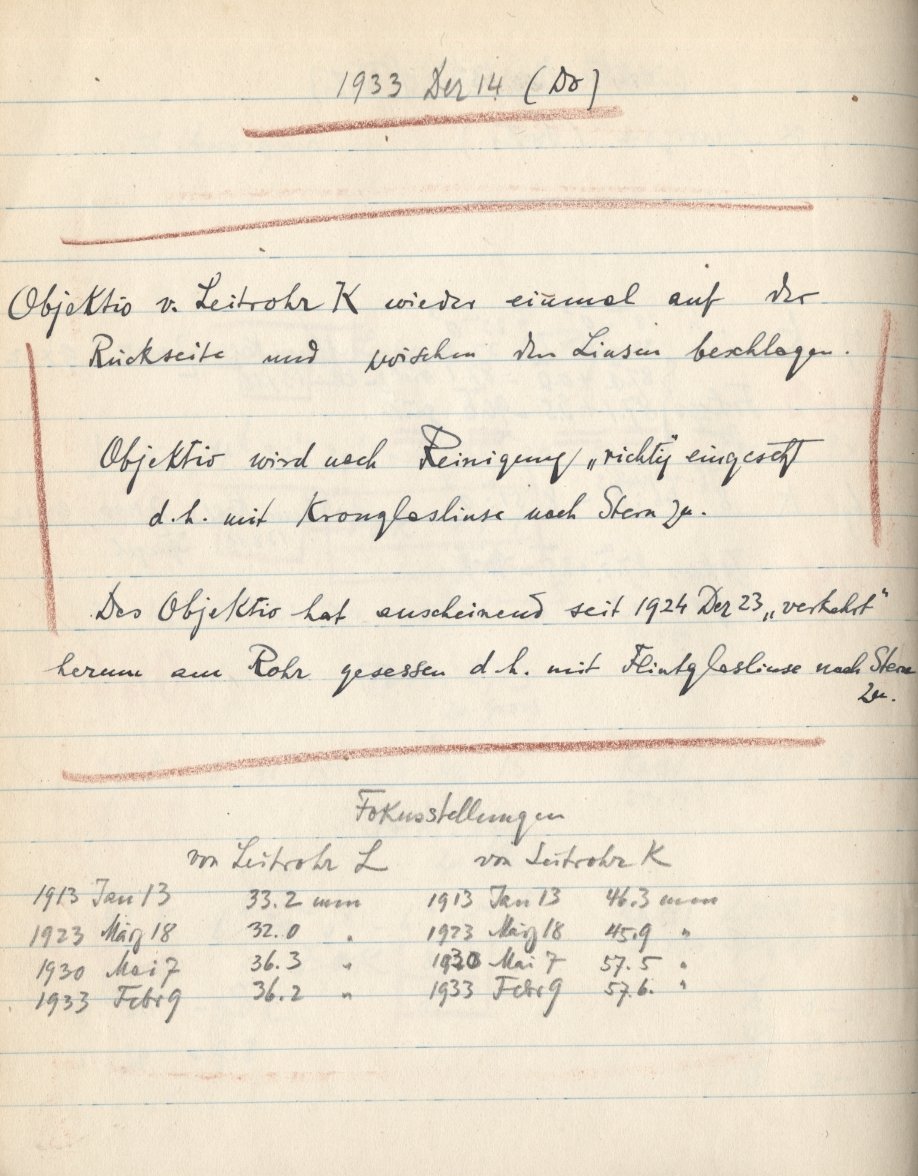 1933 Dez 14 (Do)
Objektiv v. Leitrohr K wieder einmal auf der
Rückseite und zwischen den Linsen beschlagen.
Objektiv wird nach Reinigung „richtig" eingesetzt
d.h. mit Kronglaslinse nach Stern zu.
Das Objektiv hat anscheinend seit 1924 Dez 23 „verkehrt"
herum am Rohr gesessen d.h. mit Flintglaslinse nach Stern
zu.
Fokusstellungen
von Leitrohr L von Leitrohr K
1913 Jan 13 33.2 mm 1913 Jan 13 46.3 mm
1923 März 18 32.0 " 1923 März 18 45.9 "
1930 Mai 7 36.3 " 1930 Mai 7 57.5 "
1933 Febr 9 36.2 " 1933 Febr 9 57.6. "